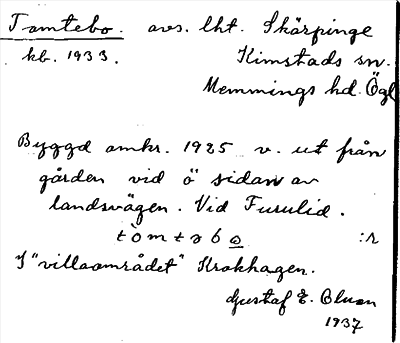 Tomtebo. avs. lht. Skärpinge
kb. 1933. Kimstads sn.
Memmings hd. Ögl
Byggd omkr. 1925 v. ut från
gården vid ö sidan av
landsvägen. Vid Furulid.
tòmtəbo̲ :r
I "villaområdet" Krokhagen.
Gustaf E. Olson
1937